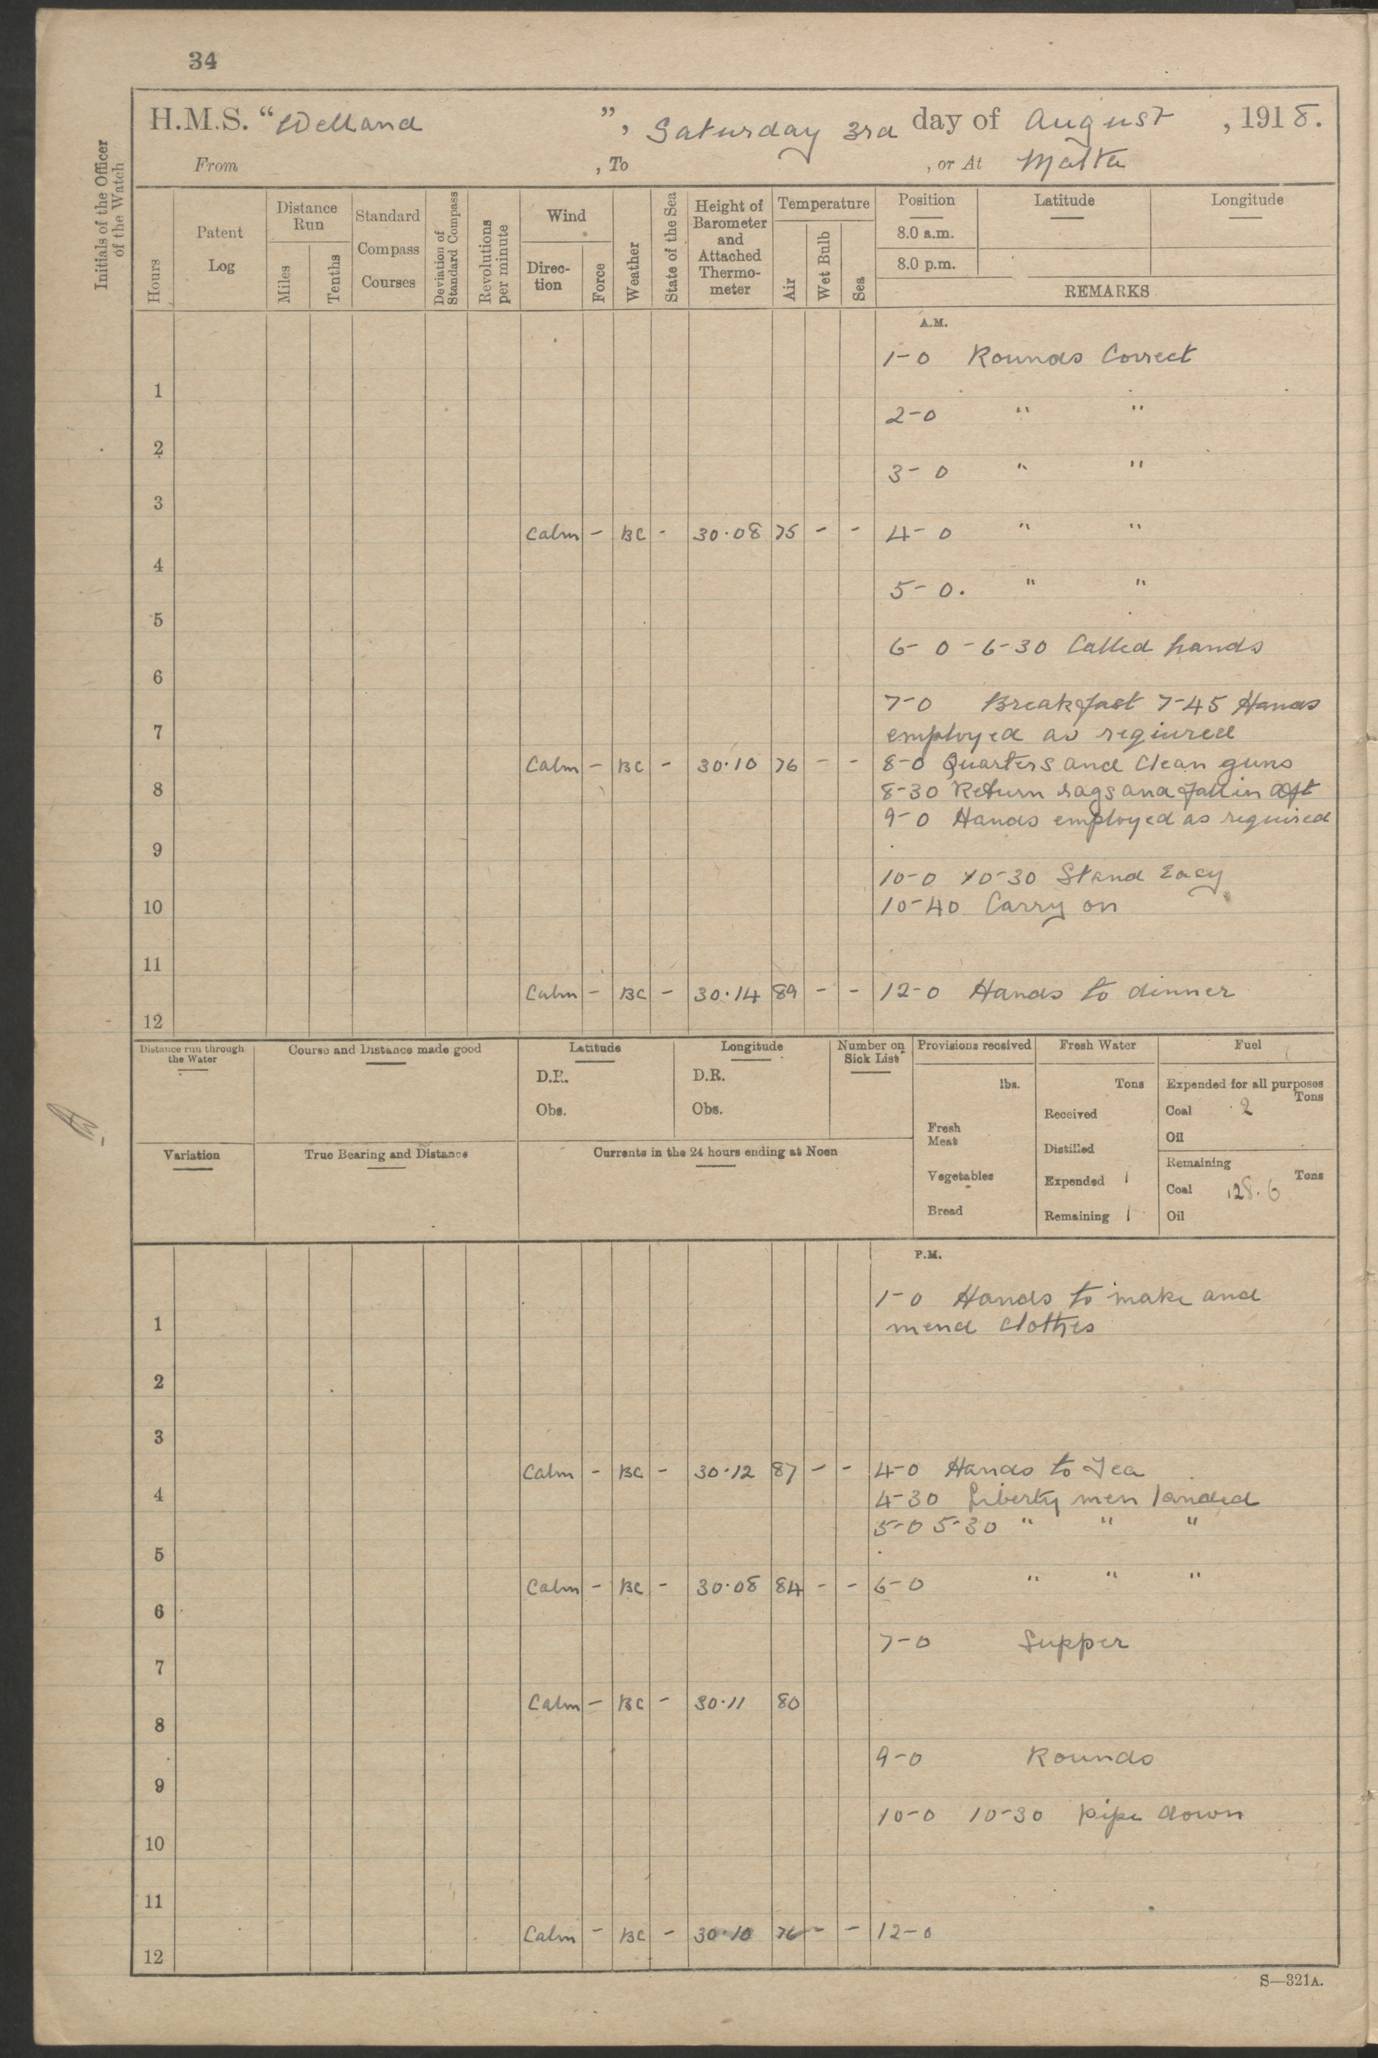 34
H.M.S. "Welland ", Saturday 3rd day of August , 1918.
From , To , or At Malta
Initials of the Officer of the Watch
Hours
Patent Log
Distance Run
Miles
Tenths
Standard Compass Courses
Deviation of Standard Compass
Revolutions per minute
Wind
Direc- tion
Force
Weather
State of the Sea
Height of Barometer and Attached Thermo- meter
Temperature
Air
Wet Bulb
Sea
Position
8.0 a.m.
8.0 p.m.
Latitude
Longitude
REMARKS
A.M.
1-0 Rounds Correct
1
2-0 " "
2
3-0 " "
3
Calm - BC - 30.08 75 - - 4-0 " "
4
5-0. " "
5
6-0 - 6-30 Called hands
6
7-0 Breakfast 7-45 Hands
7 employed as required
Calm - BC - 30.10 76 - - 8-0 Quarters and Clean guns
8 8-30 Return rags and fall in Aft
9-0 Hands employed as required
9
10-0 10-30 Stand Easy
10 10-40 Carry on
11
Calm - BC - 30.14 89 - - 12-0 Hands to dinner
12
Distance run through the Water
Course and Distance made good
Latitude
D.R.
Obs.
Longitude
D.R.
Obs.
Number on Sick List
Provisions received
lbs.
Fresh Meat
Vegetables
Bread
Fresh Water
Tons
Received
Distilled
Expended 1
Remaining 1
Fuel
Expended for all purposes
Tons
Coal 2
Oil
Remaining
Tons
Coal 128.6
Oil
Variation
True Bearing and Distance
Currents in the 24 hours ending at Noon
P.M.
1-0 Hands to make and
1 mend clothes
2
3
Calm - BC - 30.12 87 - - 4-0 Hands to Tea
4 4-30 Liberty men landed
5-0 5-30 " " "
5
Calm - BC - 30.08 84 - - 6-0 " " "
6
7-0 Supper
7
Calm - BC - 30.11 80
8
9-0 Rounds
9
10-0 10-30 pipe down
10
11
Calm - BC - 30.10 76 - - 12-0
12
S—321A.